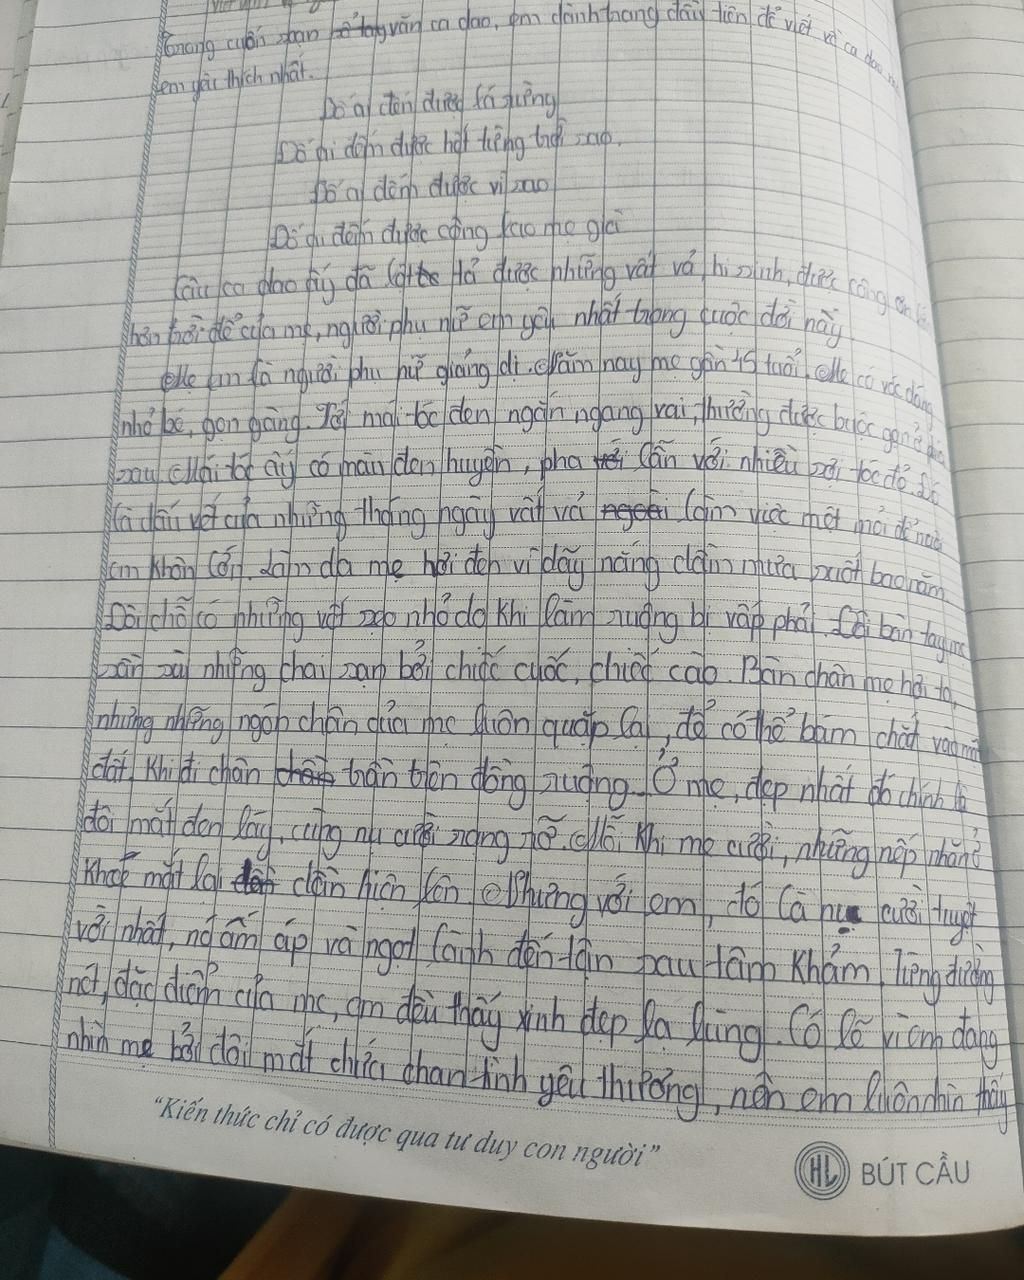 Trong cuốn sổ tay văn ca dao, em dành trang đầu tiên để viết về ca dao
em yêu thích nhất.
Đố ai đếm được lá rừng
Đố ai đếm được hết tiếng trời sao.
Đố ai đếm được vì sao
Đố ai đếm được công lao mẹ già
Câu ca dao ấy đã lột tả được những vất vả, hi sinh, được công ơn
hơn trời để của mẹ, người phụ nữ em yêu nhất trong cuộc đời này
Mẹ em là người phụ nữ giảng dị. Năm nay mẹ gần 45 tuổi. Mẹ có vóc dáng
nhỏ bé, gọn gàng. Tới mái tóc đen ngắn ngang vai, thường được buộc gọn ở
sau. Mái tóc ấy có màu đen huyền, pha lẫn với nhiều sợi tóc đỏ. Đó
là dấu vết của những tháng ngày vất vả làm việc mệt mỏi để nuôi
em khôn lớn. Làm da mẹ hơi đen vì dãy nắng dầm mưa suốt bao năm.
Đôi chỗ có những vết sẹo nhỏ do khi làm ruộng bị vấp phải. Đôi bàn tay mẹ
sần sùi những chai sạn bởi chiếc cuốc, chiếc cào. Bàn chân mẹ hơi to,
nhưng những ngón chân của mẹ luôn quặp lại, để có thể bám chắt vào mặt
đất, khi đi chân trần trên đồng ruộng. Ở mẹ, đẹp nhất đó chính là
đôi mắt đen láy, cùng nụ cười rạng rỡ. Mỗi khi mẹ cười, những nếp nhăn ở
khoé mắt lại dần hiện lên. Nhưng với em, đó là nụ cười tuyệt
vời nhất, nó ấm áp và ngọt lành đến tận sau tâm khảm. Tiếng đường
nét, đặc điểm của mẹ, em đều thấy xinh đẹp lạ lùng. Có lẽ vì em đang
nhìn mẹ bởi đôi mắt chứa chan tình yêu thương, nên em luôn nhìn thấy
"Kiến thức chỉ có được qua tư duy con người"
HL BÚT CẦU